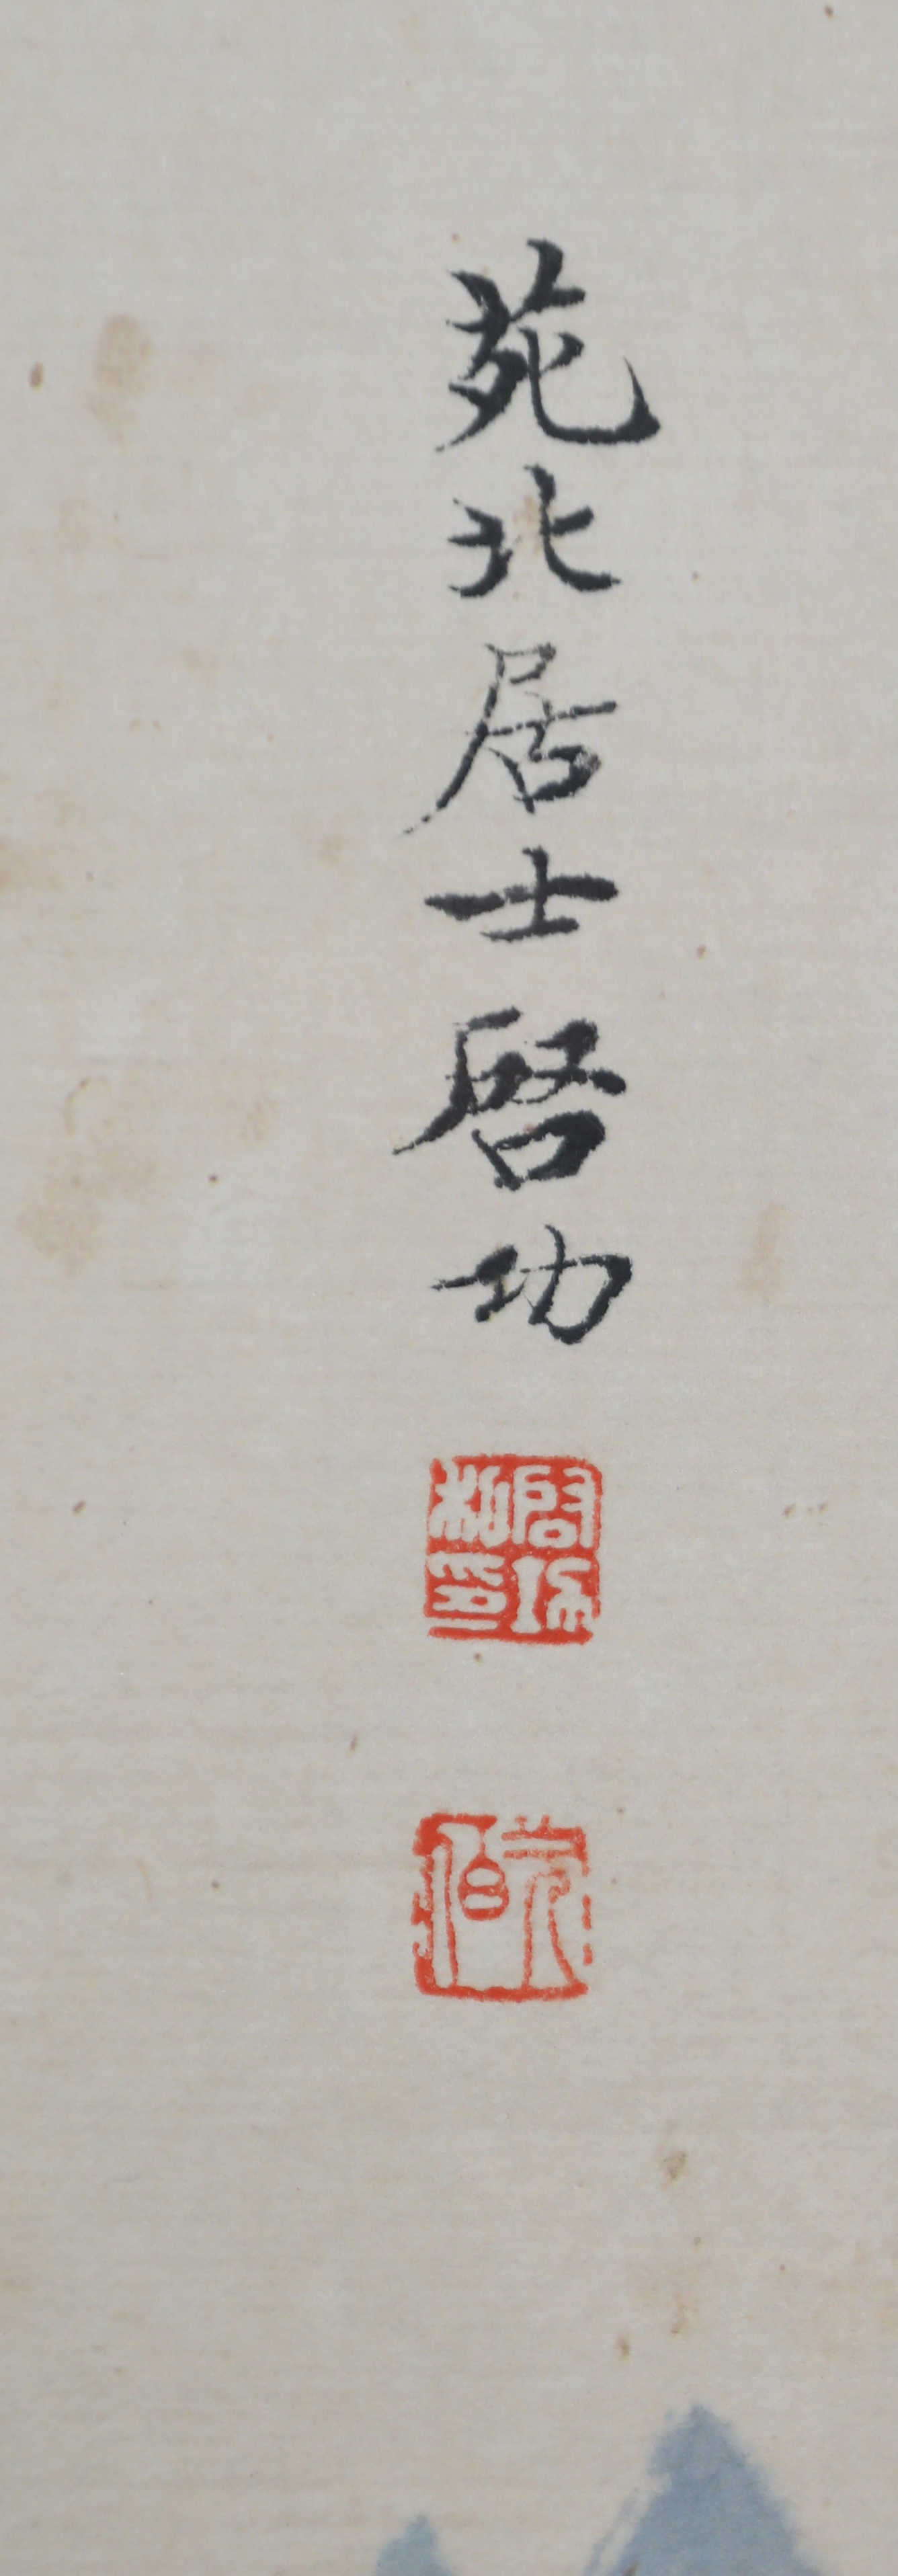 苑北居士啓功
啓功私印
元伯